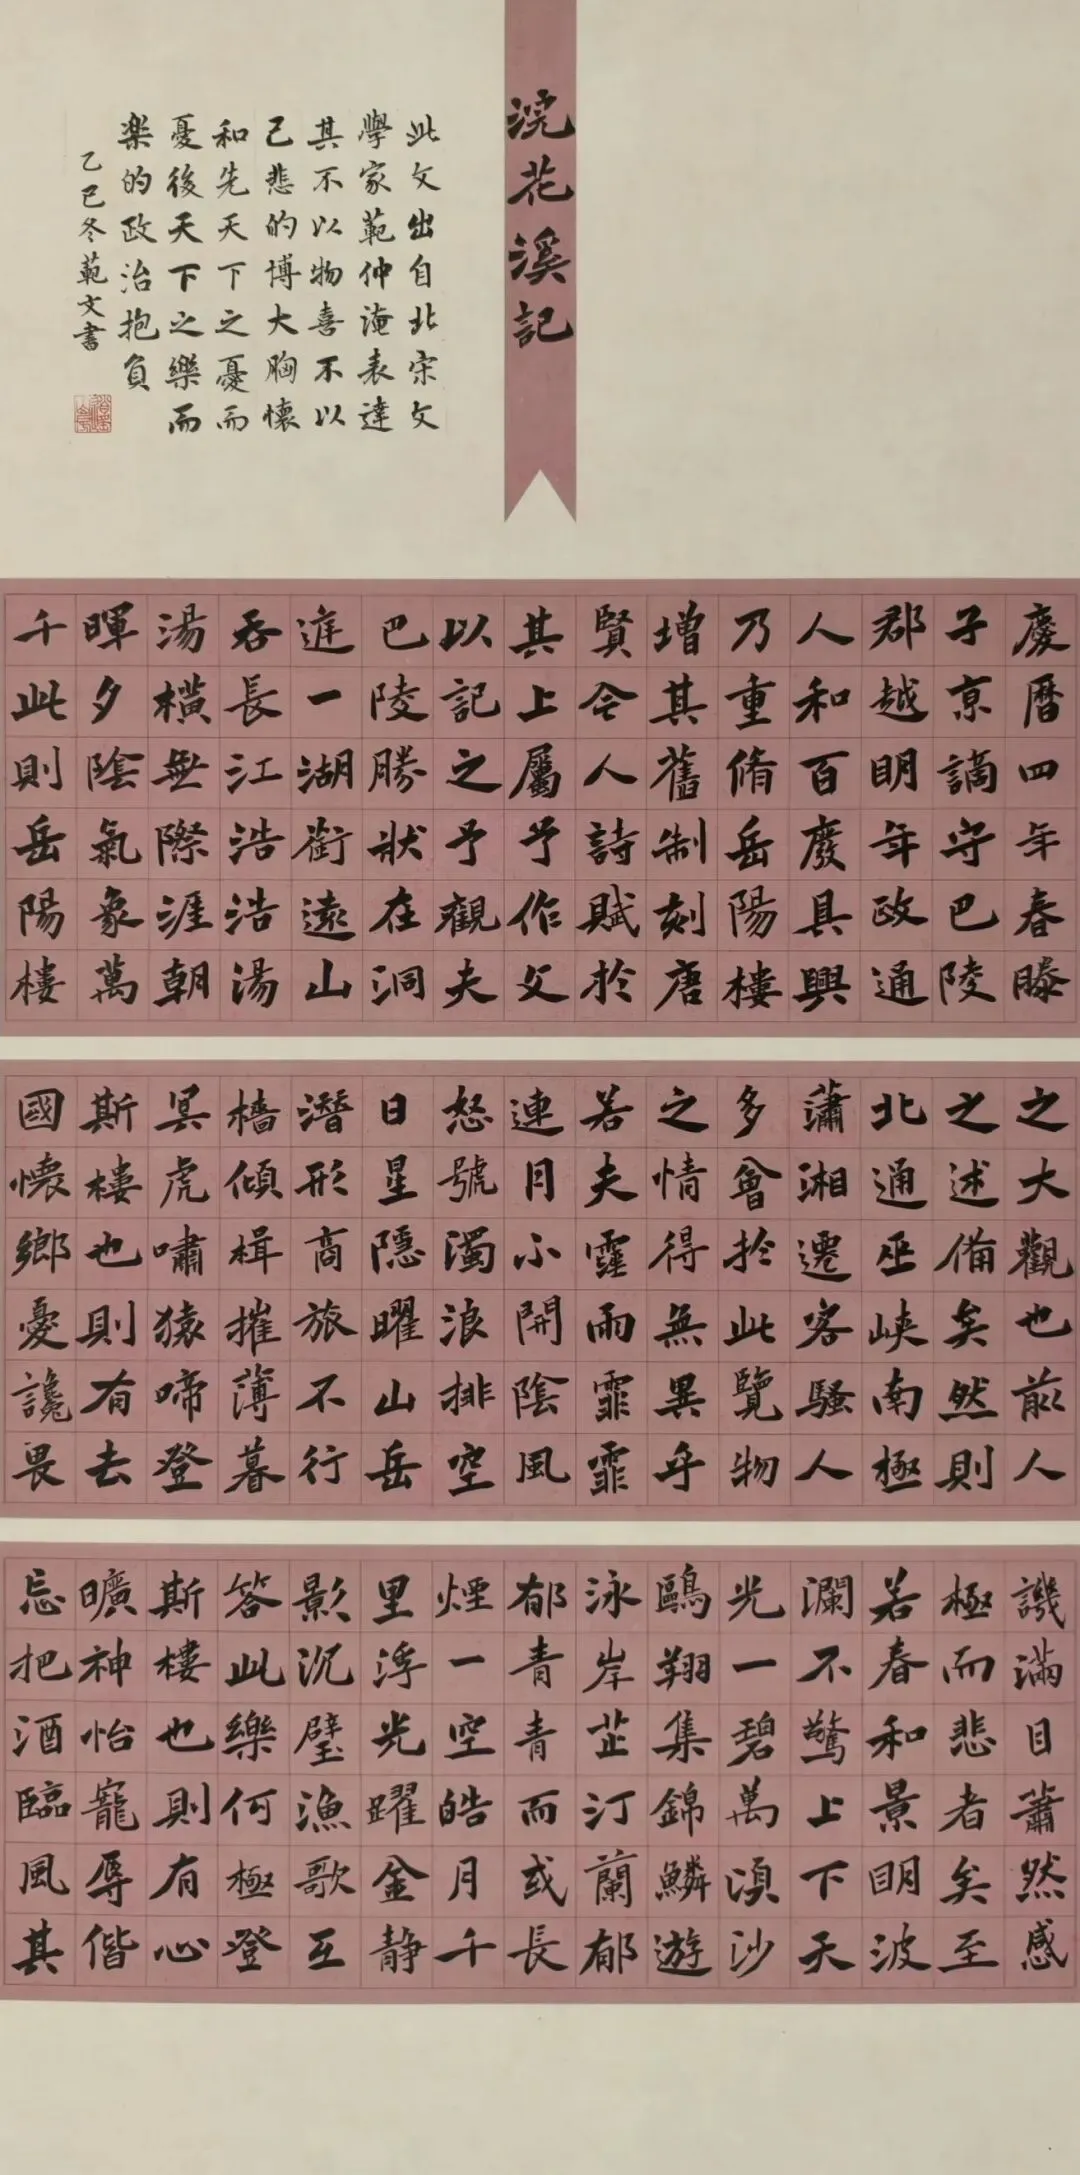 浣花溪記
此文出自北宋文
學家範仲淹表達
其不以物喜不以
己悲的博大胸懷
和先天下之憂而
憂後天下之樂而
樂的政治抱負
乙巳冬範文書
慶曆四年春滕
子京謫守巴陵
郡越明年政通
人和百廢具興
乃重脩岳陽樓
增其舊制刻唐
賢今人詩賦於
其上屬予作文
以記之予觀夫
巴陵勝狀在洞
庭一湖銜遠山
吞長江浩浩湯
湯橫無際涯朝
暉夕陰氣象萬
千此則岳陽樓
之大觀也前人
之述備矣然則
北通巫峽南極
瀟湘遷客騷人
多會於此覽物
之情得無異乎
若夫霪雨霏霏
連月不開陰風
怒號濁浪排空
日星隱曜山岳
潛形商旅不行
檣傾楫摧薄暮
冥虎嘯猿啼登
斯樓也則有去
國懷鄉憂讒畏
譏滿目蕭然感
極而悲者矣至
若春和景明波
瀾不驚上下天
光一碧萬頃沙
鷗翔集錦鱗遊
泳岸芷汀蘭郁
郁青青而或長
煙一空皓月千
里浮光躍金静
影沉璧漁歌互
答此樂何極登
斯樓也則有心
曠神怡寵辱偕
忘把酒臨風其